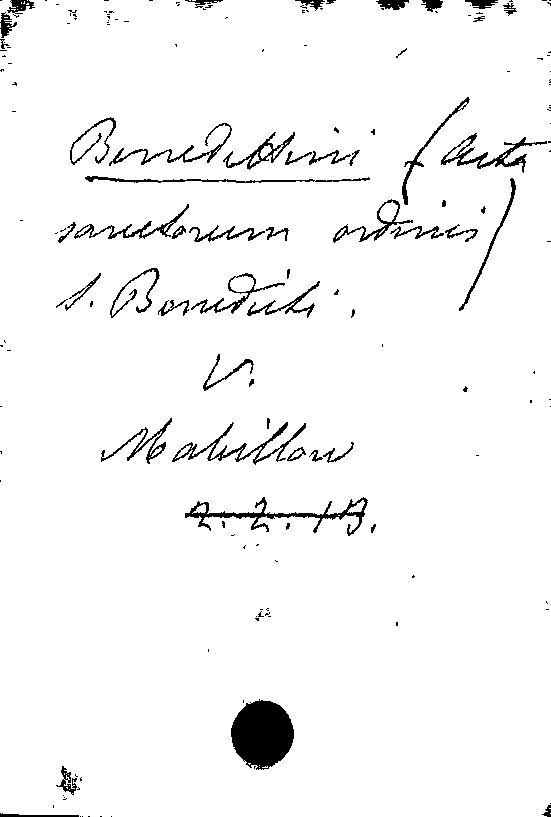 Benedittini (Acta
sanctorum ordinis)
S. Benedicti.
V.
Mabillon
2. 2. 1B.